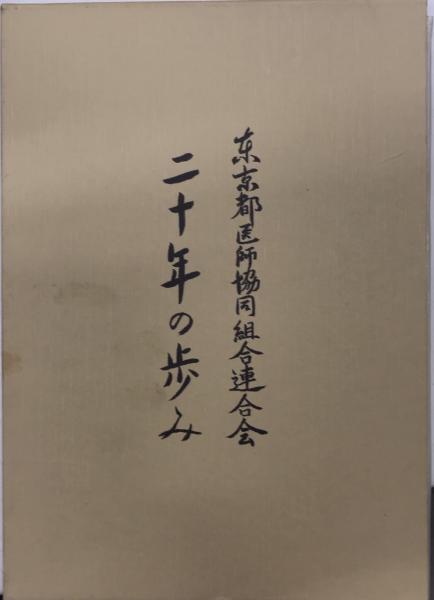 東京都医師協同組合連合会
二十年の歩み